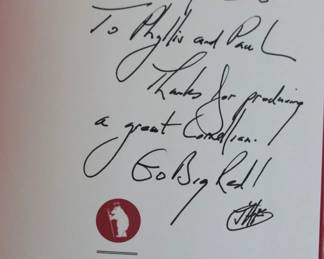 To Phyllis and Paul
Thanks for producing
a great Cornellian.
Go Big Red!